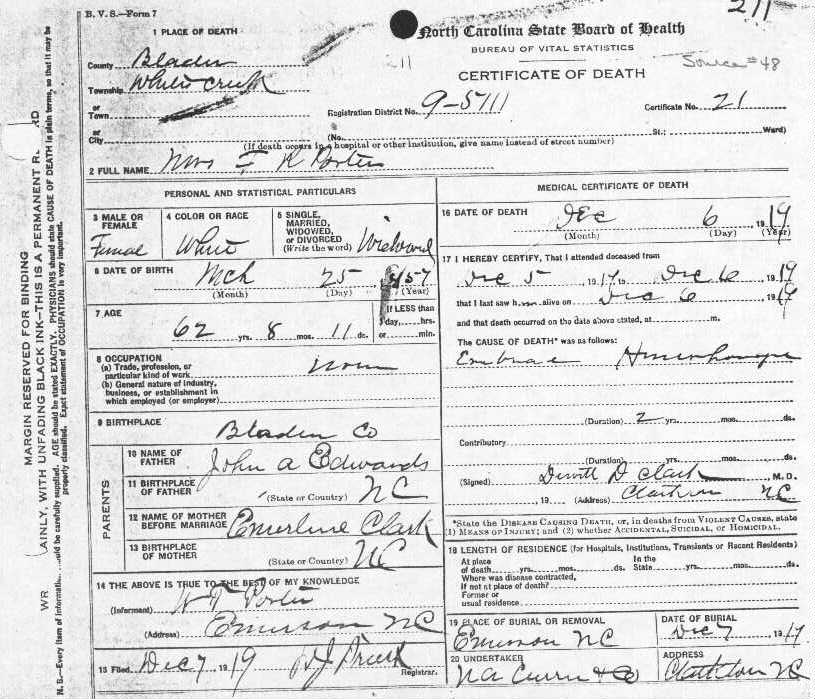 B. V. S.—Form 7
211
North Carolina State Board of Health
BUREAU OF VITAL STATISTICS
CERTIFICATE OF DEATH
Source #48
211
1 PLACE OF DEATH
County Bladen
Township White Creek
or
Town
or
City
Registration District No. 9-5711 Certificate No. 21
(No. St.; Ward)
(If death occurs in a hospital or other institution, give name instead of street number)
2 FULL NAME Mrs
PERSONAL AND STATISTICAL PARTICULARS
3 MALE OR FEMALE Female
4 COLOR OR RACE White
5 SINGLE, MARRIED, WIDOWED, or DIVORCED (Write the word) Widowed
6 DATE OF BIRTH Mch 25 1857
(Month) (Day) (Year)
7 AGE 62 yrs. 8 mos. 11 ds.
If LESS than
day, hrs.
or min.
8 OCCUPATION
(a) Trade, profession, or
particular kind of work
(b) General nature of industry,
business, or establishment in
which employed (or employer)
9 BIRTHPLACE Bladen Co
PARENTS
10 NAME OF FATHER John A Edwards
11 BIRTHPLACE OF FATHER (State or Country) NC
12 NAME OF MOTHER BEFORE MARRIAGE Emerline Clark
13 BIRTHPLACE OF MOTHER (State or Country) NC
14 THE ABOVE IS TRUE TO THE BEST OF MY KNOWLEDGE
(Informant) Porter
(Address) Emerson NC
15 Filed Dec 7 1919 Registrar.
MEDICAL CERTIFICATE OF DEATH
16 DATE OF DEATH Dec 6 1919
(Month) (Day) (Year)
17 I HEREBY CERTIFY, That I attended deceased from
Dec 5, 1919 to Dec 6 1919
that I last saw h alive on Dec 6 1919
and that death occurred on the date above stated, at m.
The CAUSE OF DEATH* was as follows:
(Duration) 2 yrs. mos. ds.
Contributory
(Duration) yrs. mos. ds.
(Signed) D Clark M. D.
19 (Address) Clarkton NC
*State the DISEASE CAUSING DEATH, or, in deaths from VIOLENT CAUSES, state
(1) MEANS OF INJURY; and (2) whether ACCIDENTAL, SUICIDAL, or HOMICIDAL.
18 LENGTH OF RESIDENCE (for Hospitals, Institutions, Transients or Recent Residents)
At place of death yrs. mos. ds. In the State yrs. mos. ds.
Where was disease contracted,
if not at place of death?
Former or
usual residence
19 PLACE OF BURIAL OR REMOVAL Emerson NC
DATE OF BURIAL Dec 7 1919
20 UNDERTAKER & Co
ADDRESS Clarkton NC
MARGIN RESERVED FOR BINDING
AINLY, WITH UNFADING BLACK INK—THIS IS A PERMANENT R
WR
N. B.—Every item of informati
uld be carefully supplied. AGE should be stated EXACTLY. PHYSICIANS should state CAUSE OF DEATH in plain terms, so that it may be
properly classified. Exact statement of OCCUPATION is very important.